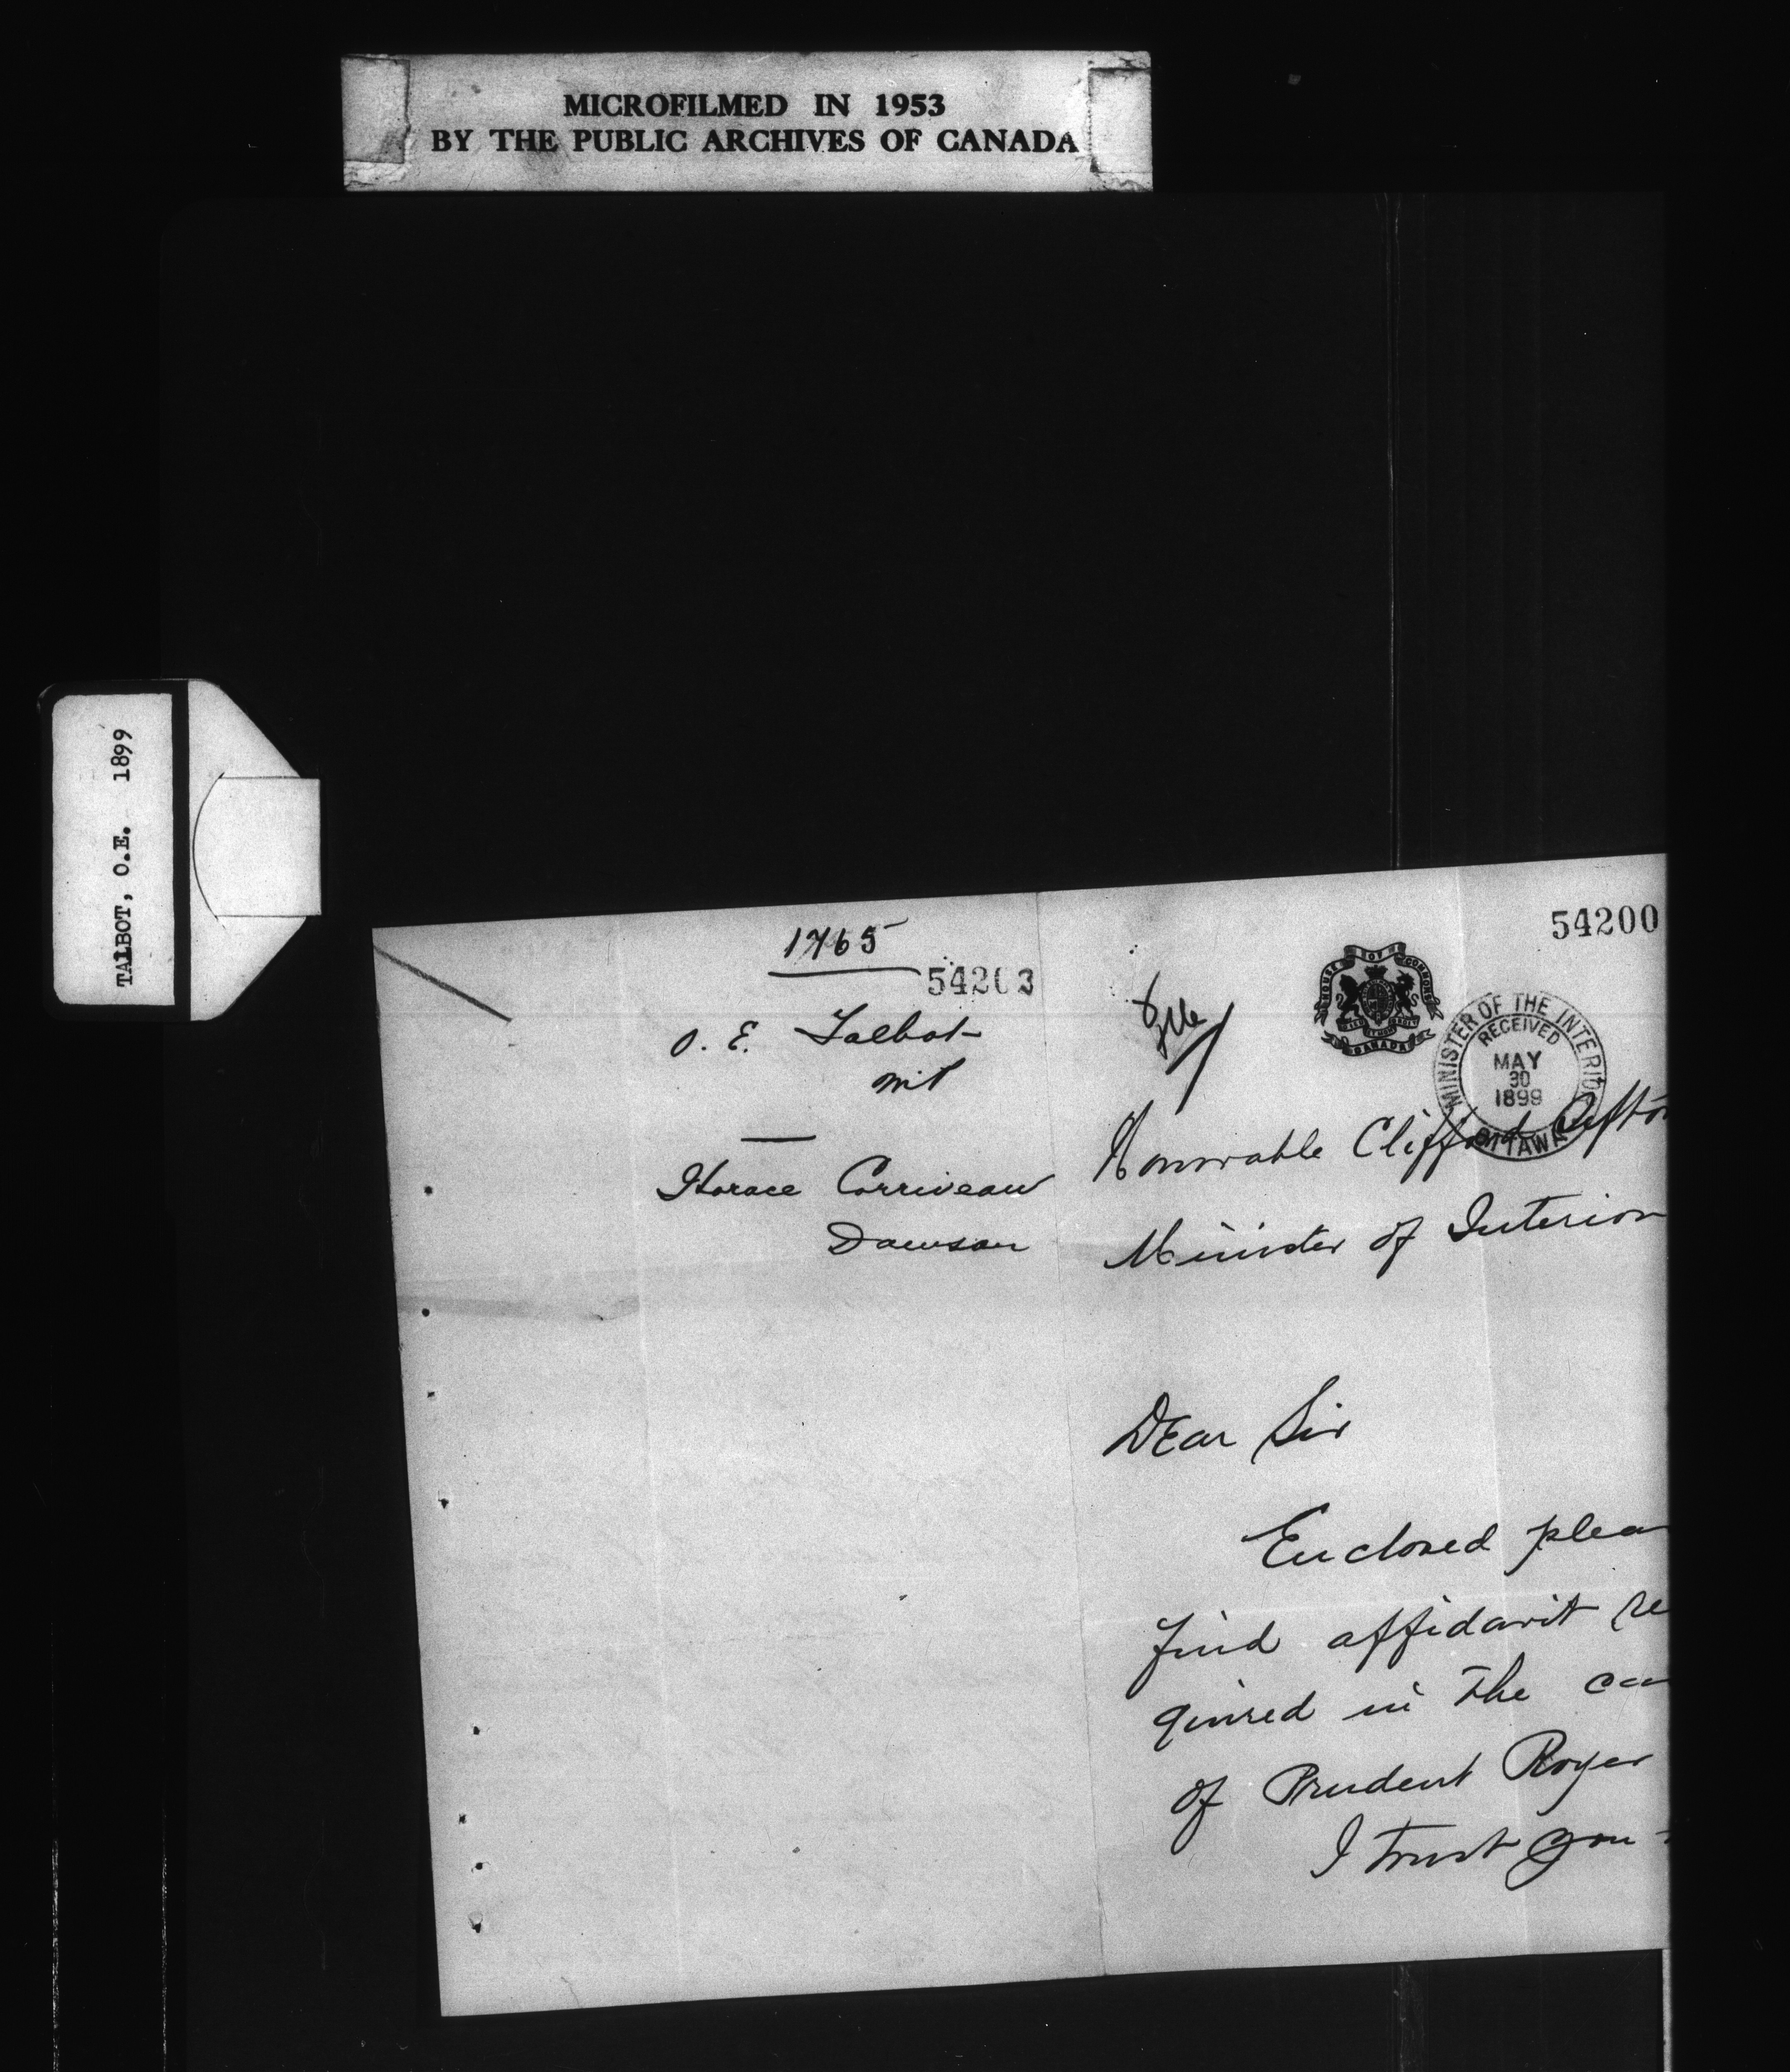 MICROFILMED IN 1953
BY THE PUBLIC ARCHIVES OF CANADA
TALBOT, O.E. 1899
1765
54203
O. E. Talbot
MP
Horace Corriveau
Dawson
54200
File
HOUSE OF COMMONS
CANADA
MINISTER OF THE INTERIO
RECEIVED
MAY
30
1899
OTTAWA
Honorable Clifford Sifto
Minister of Interior
Dear Sir
Enclosed plea
find affidavit re
quired in the ca
of Prudent Royer
I trust you